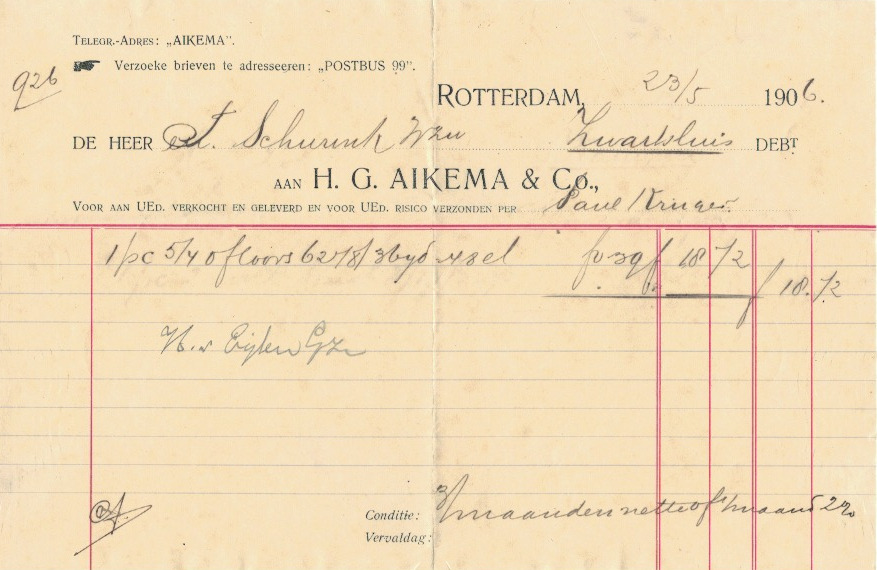 TELEGR.-ADRES: „AIKEMA”.
Verzoeke brieven te adresseeren: „POSTBUS 99”.
926
ROTTERDAM, 23/5 1906.
DE HEER A. Schurink Wzn Zwartsluis DEBT
AAN H. G. AIKEMA & Co.,
VOOR AAN UED. VERKOCHT EN GELEVERD EN VOOR UED. RISICO VERZONDEN PER Paul Kruger
1 pc 5/4 floors 18 72
f 18.72
Conditie: 3/maanden netto of 1/maand 2%
Vervaldag: